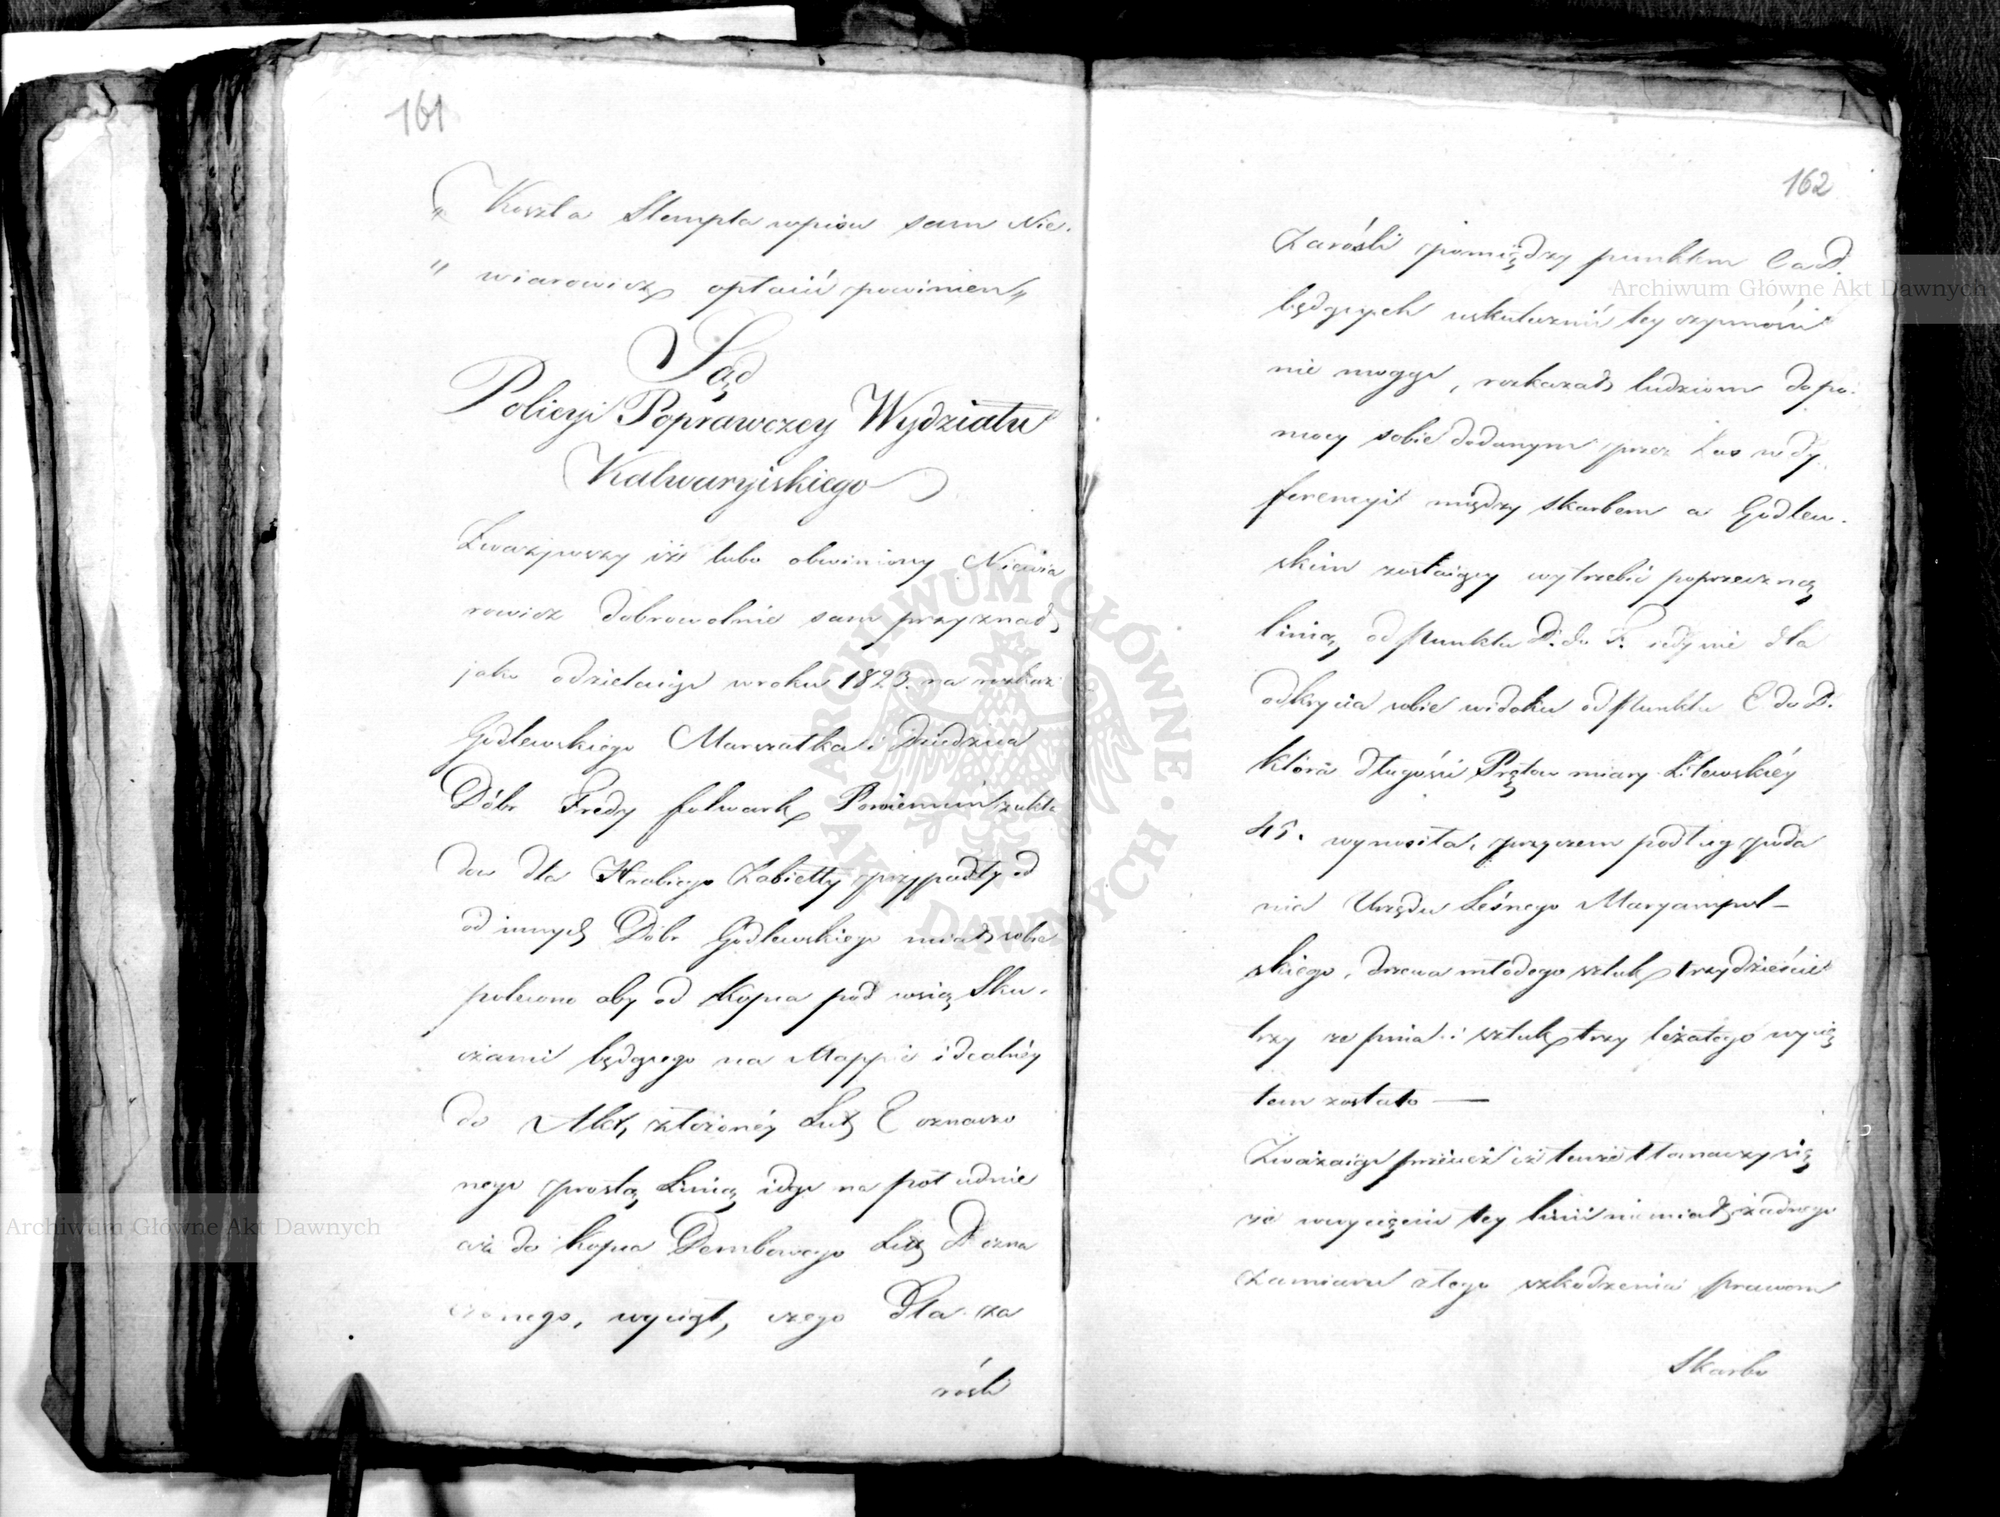 161
„ Koszta Stempla wpisu sam Nie-
„ wiarowicz opłacić powinien„
Sąd
Policyi Poprawczey Wydziału
Kalwaryiskiego
Zważywszy iż lubo obwiniony Niewia
rowicz dobrowolnie sam przyznał,
jako oddzielaiąc w roku 1823. na rozkaz
Godlewskiego Marszałka i Dziedzica
Dóbr Fredy folwark Poniemuń
dow dla Hrabiego Zabiełły przypadły od
od innych Dóbr Godlewskiego miał sobie
polecono aby od Kopca pod wsią Sku-
czami będącego na Mappie idealnéy
do Akt, złożonéy Lit C oznaczo
nego prostą Linią idąc na południe
aż do kopca Dembowego Lit D ozna
czonego, wyciął, czego Dla za
rośli
162
Zarośli pomiędzy punktem C a D.
będących uskutecznić tey czynności
nie mogąc, rozkazał ludziom do po-
mocy sobie dodanym przez Las w dy-
ferencyi między skarbem a Godlew-
skim zostaiący wytrzebić poprzeczną
linią od Punktu D. do F. iedynie dla
odkrycia sobie widoku od Punktu C do D.
która długości Prętow miary Litewskiéy
45. wynosiła, przyczem podług poda
nia Urzędu Leśnego Maryampol-
skiego, drzewa młodego sztuk trzydzieście
trzy ze pnia i sztuk trzy leżałego wycię
tem zostało —
Zważaiąc przecież iż tenże tłomaczy się
że w wycięciu tey linii nie miał żadnego
zamiaru złego szkodzenia prawom
Skarbu
Archiwum Główne Akt Dawnych
Archiwum Główne Akt Dawnych
ARCHIWUM GŁÓWNE AKT DAWNYCH